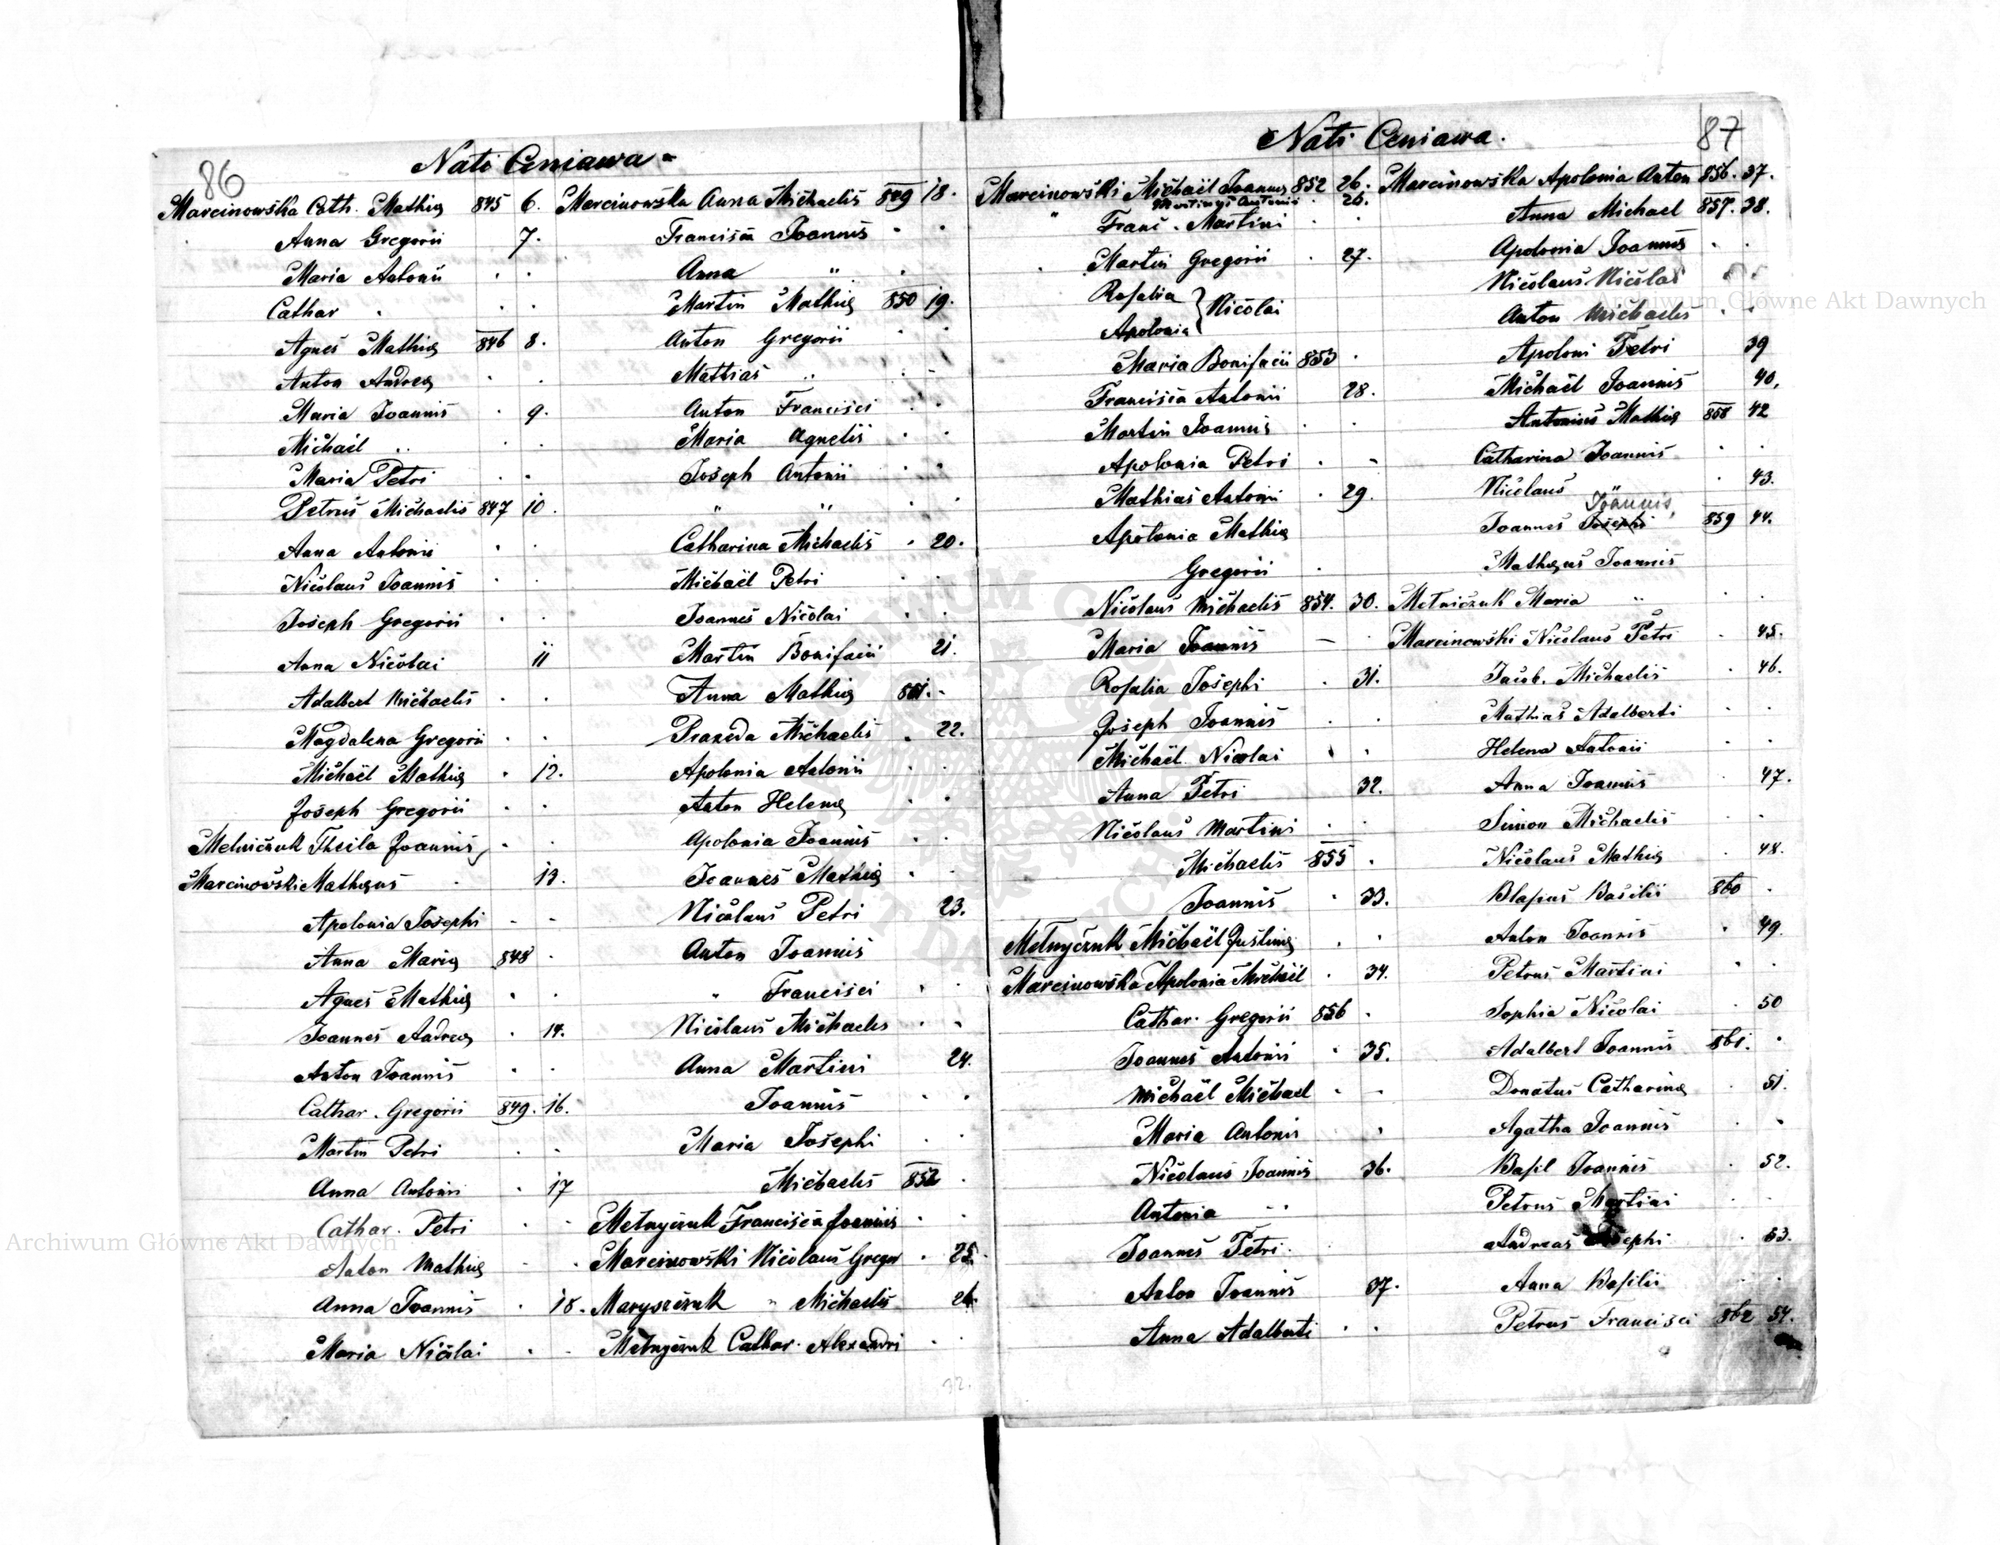 86
Nati Ceniawa
Marcinowska Cath. Mathiæ 845 6.
Anna Gregorii 7.
Maria Antonii . .
Cathar . . .
Agnes Mathiæ 846 8.
Anton Andreæ . .
Maria Joannis . 9.
Michael .. . .
Maria Petri . .
Petrus Michaelis 847 10.
Anna Antonii . .
Nicolaus Joannis . .
Joseph Gregorii . .
Anna Nicolai 11
Adalbert Michaelis . .
Magdalena Gregorii . .
Michaël Mathiæ . 12.
Joseph Gregorii . .
Melniczuk Joannis . .
Marcinowski Mathæus . 13.
Apolonia Josephi . .
Anna Mariæ 848 .
Agnes Mathiæ . .
Joannes Andreæ . 14.
Anton Joannis . .
Cathar. Gregorii 849. 16.
Martin Petri . .
Anna Antonii . 17
Cathar. Petri . .
Anton Mathiæ . .
Anna Joannis . 18.
Maria Nicolai . .
Marcinowska Anna Michaelis 849 18.
Francisca Joannis . .
Anna " .
Martin Mathiæ 850 19.
Anton Gregorii . .
Mathias .. . .
Anton Francisci . .
Maria Agnetis . .
Joseph Antonii . .
" " . .
Catharina Michaelis . 20.
Michaël Petri . .
Joannes Nicolai . .
Martin Bonifacii 21.
Anna Mathiæ 851. .
Praxeda Michaelis . 22.
Apolonia Antonii . .
Anton Helenæ . .
Apolonia Joannis . .
Joannes Mathiæ . .
Nicolaus Petri 23.
Anton Joannis
" Francisci . .
Nicolaus Michaelis . .
Anna Martini 24.
Joannis . .
Maria Josephi . .
Michaelis 852 .
Melnyczuk Francisca Joannis . .
Marcinowski Nicolaus Gregor . 25.
Maryszczuk " Michaelis 26.
Melnyczuk Cathar. Alexandri . .
32.
87
Nati Ceniawa.
Marcinowski Michaël Joannis 852 26.
Antonii . 26.
" Franc. Martini . .
Martin Gregorii . 27.
Rosalia } Nicolai
Apolonia
Maria Bonifacii 853 .
Francisca Antonii 28.
Martin Joannis . .
Apolonia Petri . -
Mathias Antonii . 29.
Apolonia Mathiæ
Gregorii .
Nicolaus Michaelis 854. 30.
Maria Joannis - .
Rosalia Josephi . 31.
Joseph Joannis . .
Michaël Nicolai . .
Anna Petri 32.
Nicolaus Martini . .
Michaelis 855 .
Joannis . 33.
Melnyczuk Michaël Justinæ . .
Marcinowska Apolonia Michaël . 34.
Cathar. Gregorii 856 .
Joannes Antonii . 35.
Michaël Michael . .
Maria Antonii .
Nicolaus Joannis 36.
Antonia ..
Joannes Petri.
Anton Joannis 37.
Anna Adalberti . .
Marcinowska Apolonia Anton 856. 37.
Anna Michael 857. 38.
Apolonia Joannis . .
Nicolaus Nicolai
Anton Michaelis . .
Apoloni Petri 39
Michaël Joannis 40.
Antonius Mathiæ 858 42
Catharina Joannis . .
Nicolaus . 43.
Joannis,
Joannes Josephi 859 44.
Mathæus Joannis
Melniczuk Maria " . .
Marcinowski Nicolaus Petri . 45.
Jacob. Michaelis . 46.
Mathias Adalberti . .
Helena Antonii . .
Anna Joannis . 47.
Simon Michaelis . .
Nicolaus Mathiæ . 48.
Blasius Basilii 860 .
Anton Joannis . 49.
Petrus Martini . .
Sophia Nicolai . 50
Adalbert Joannis 861. .
Donatus Catharinæ . 51.
Agatha Joannis . .
Basil Joannis . 52.
Petrus Martini . .
Andreas Josephi . 53.
Anna Basilii . .
Petrus Francisci 862 54.
Archiwum Główne Akt Dawnych
Archiwum Główne Akt Dawnych